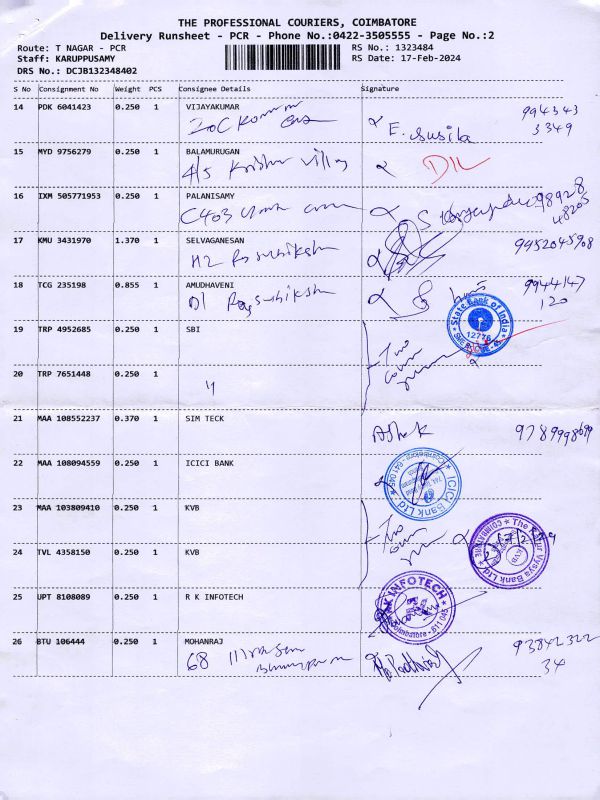 THE PROFESSIONAL COURIERS, COIMBATORE
Delivery Runsheet - PCR - Phone No.:0422-3505555 - Page No.:2
Route: T NAGAR - PCR
RS No.: 1323484
Staff: KARUPPUSAMY
RS Date: 17-Feb-2024
DRS No.: DCJB132348402
S No Consignment No Weight PCS Consignee Details Signature
14 PDK 6041423 0.250 1 VIJAYAKUMAR
994343
3349
E. Susila
15 MYD 9756279 0.250 1 BALAMURUGAN
DIL
16 IXM 505771953 0.250 1 PALANISAMY
C403
98928
48205
17 KMU 3431970 1.370 1 SELVAGANESAN
H2
9952045908
18 TCG 235198 0.855 1 AMUDHAVENI
D1
9944147
120
State Bank of India
19 TRP 4952685 0.250 1 SBI
Two
20 TRP 7651448 0.250 1
21 MAA 108552237 0.370 1 SIM TECK
Ashok
22 MAA 108094559 0.250 1 ICICI BANK
ICICI Bank Ltd.
Coimbatore - 641 045
23 MAA 103809410 0.250 1 KVB
Two
The Karur Vysya Bank Ltd.
COIMBATORE
KVB
24 TVL 4358150 0.250 1 KVB
25 UPT 8108089 0.250 1 R K INFOTECH
RK INFOTECH
Coimbatore - 611 045
26 BTU 106444 0.250 1 MOHANRAJ
68
93842322
34